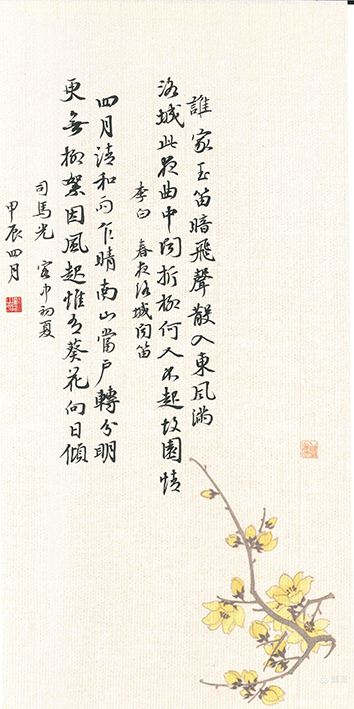 誰家玉笛暗飛聲散入東風滿
洛城此夜曲中聞折柳何人不起故園情
李白 春夜洛城聞笛
四月清和雨乍晴南山當戶轉分明
更無柳絮因風起惟有葵花向日傾
司馬光 客中初夏
甲辰四月